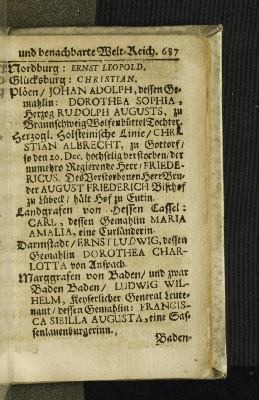 und benachbarte Welt-Reich. 687
Nordburg: ERNST LEOPOLD.
Glücksburg: CHRISTIAN.
Plöen/ JOHAN ADOLPH, dessen Ge-
mahlin: DOROTHEA SOPHIA,
Herzog RUDOLPH AUGUSTS, zu
Braunschweig Wolfenbüttel Tochter.
Herzogl. Holsteinische Linie/ CHRI-
STIAN ALBRECHT, zu Gottorf/
so den 20. Dec. hochselig verstorben/ der
numehro Regierende Herr/ FRIEDE-
RICUS. Des Verstorbenen Herr Bru-
der AUGUST FRIEDERICH Bischof
zu Lübeck/ hält Hof zu Eutin.
Landgrafen von Hessen Cassel:
CARL, dessen Gemahlin MARIA
AMALIA, eine Curländerin.
Darmstadt/ ERNST LUDWIG, dessen
Gemahlin DOROTHEA CHAR-
LOTTA von Anspach.
Marggrafen von Baden/ und zwar
Baden Baden/ LUDWIG WIL-
HELM, Keyserlicher General Leute-
nant/ dessen Gemahlin: FRANCIS-
CA SIBILLA AUGUSTA, eine Sas-
senlauenburgerinn.
Baden-